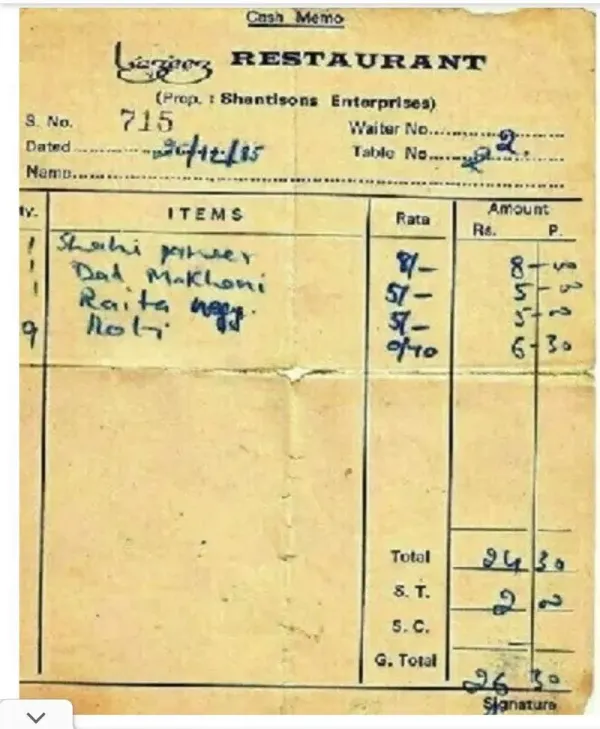 Cash Memo
Lazeez RESTAURANT
(Prop. : Shantisons Enterprises)
S. No. 715
Waiter No..............
Dated ........ 26/12/85
Table No....... 2.
Name..............
ty. ITEMS Rata Amount
Rs. P.
1 Shahi paneer 8/- 8-00
1 Dal Makhani 5/- 5-00
1 Raita 5/- 5-00
9 Roti 0/70 6-30
Total 24 30
S. T. 2 00
S. C.
G. Total
26 30
Signature